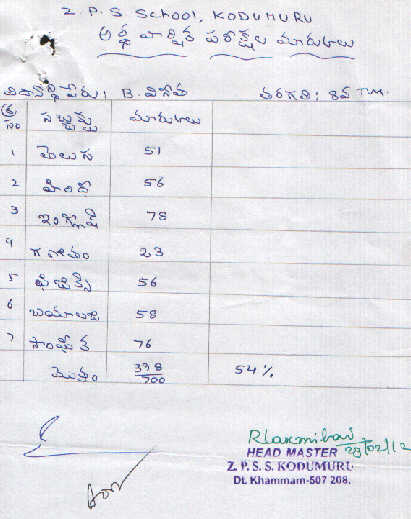 Z. P. S SCHOOL, KODUMURU
అర్ధ వార్షిక పరీక్షల మార్కులు
విద్యార్థి పేరు : B. వినోత తరగతి : 8వ T.M.
క్ర సం సబ్జెక్ట్ మార్కులు
1 తెలుగు 51
2 హిందీ 56
3 ఇంగ్లీష్ 78
4 గణితం 23
5 ఫిజిక్స్ 56
6 బయాలజి 58
7 సాంఘీక 76
మొత్తం 338/700 54%
R Laxmibai
HEAD MASTER 28/02/12
Z. P. S. S. KODUMURU
Dt. Khammam-507 208.